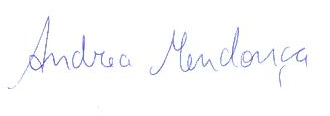 Andrea Mendonça